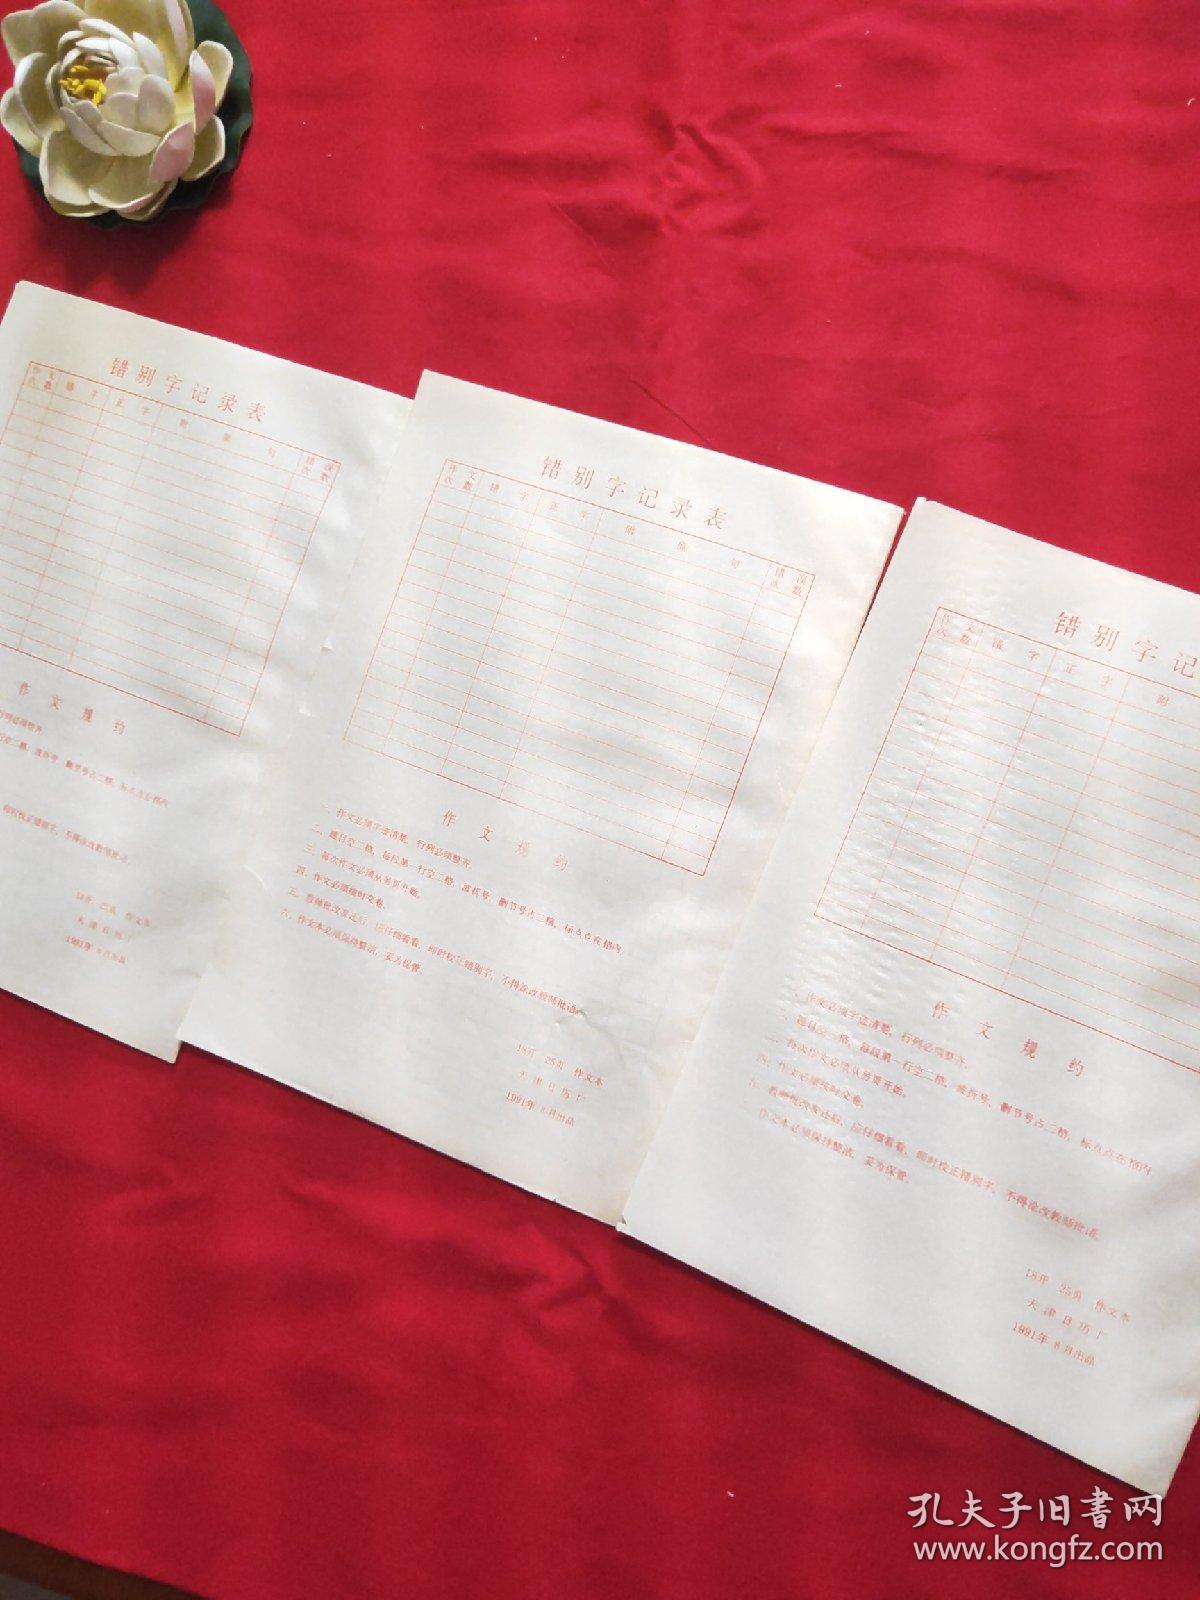 错别字记录表
作文次数 错字 正字 附原句 错误次数
作文规约
行列必须整齐。
行空二格,波折号、删节号占二格,标点点在格内
即时校正错别字,不得涂改教师批语。
18开 25页 作文本
天津日历厂
1991年8月出品
错别字记录表
作文次数 错字 正字 附原句 错误次数
作文规约
一、作文必须字迹清楚,行列必须整齐。
二、题目空二格,每段第一行空二格,波折号、删节号占二格,标点点在格内
三、每次作文必须从另页开始。
四、作文必须按时交卷。
五、教师批改发还后,应仔细看看,即时校正错别字,不得涂改教师批语。
六、作文本必须保持整洁,妥为保管。
18开 25页 作文本
天津日历厂
1991年8月出品
错别字记
作文次数 错字 正字 附
作文规约
作文必须字迹清楚,行列必须整齐。
题目空二格,每段第一行空二格,波折号、删节号占二格,标点点在格内
每次作文必须从另页开始。
四、作文必须按时交卷。
五、教师批改发还后,应仔细看看,即时校正错别字,不得涂改教师批语。
作文本必须保持整洁,妥为保管。
18开 25页 作文本
天津日历厂
1991年8月出品
孔夫子旧书网
www.kongfz.com